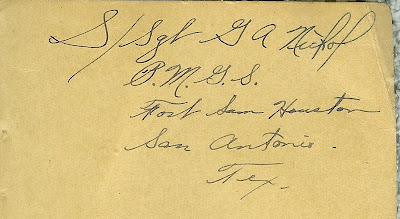 S/Sgt G A Nickol
P. M. G. S.
Fort Sam Houston
San Antonio.
Tex.